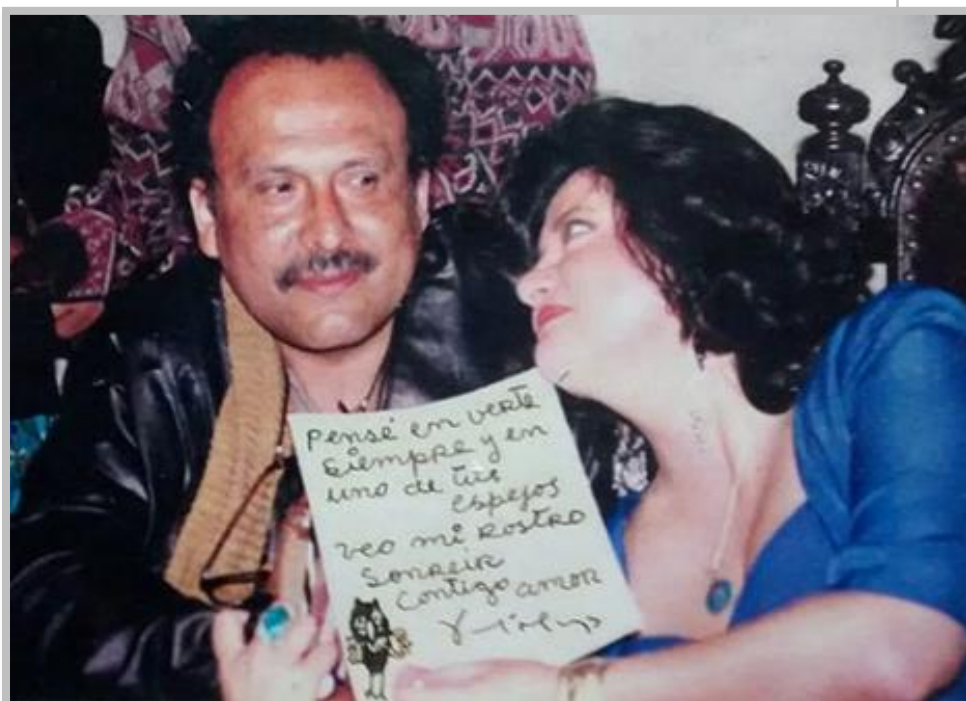 Pensé en verte
siempre y en
uno de tus
espejos
veo mi Rostro
Sonreir
contigo amor